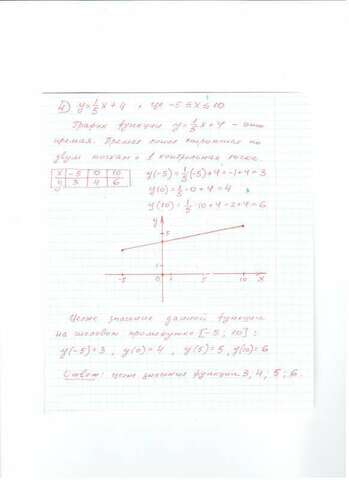 4) y=1/5x+4, где -5≤x≤10
График функции y=1/5x+4 – это
прямая. Прямая линия строится по
двум точкам + 1 контрольная точка.
x -5 0 10
y 3 4 6
y(-5)=1/5·(-5)+4=-1+4=3
y(0)=1/5·0+4=4
y(10)=1/5·10+4=2+4=6
y
5
1
-5 0 1 10 x
Целые значения данной функции
на числовом промежутке [-5; 10]:
y(-5)=3, y(0)=4, y(5)=5, y(10)=6
Ответ: целые значения функции 3, 4, 5, 6